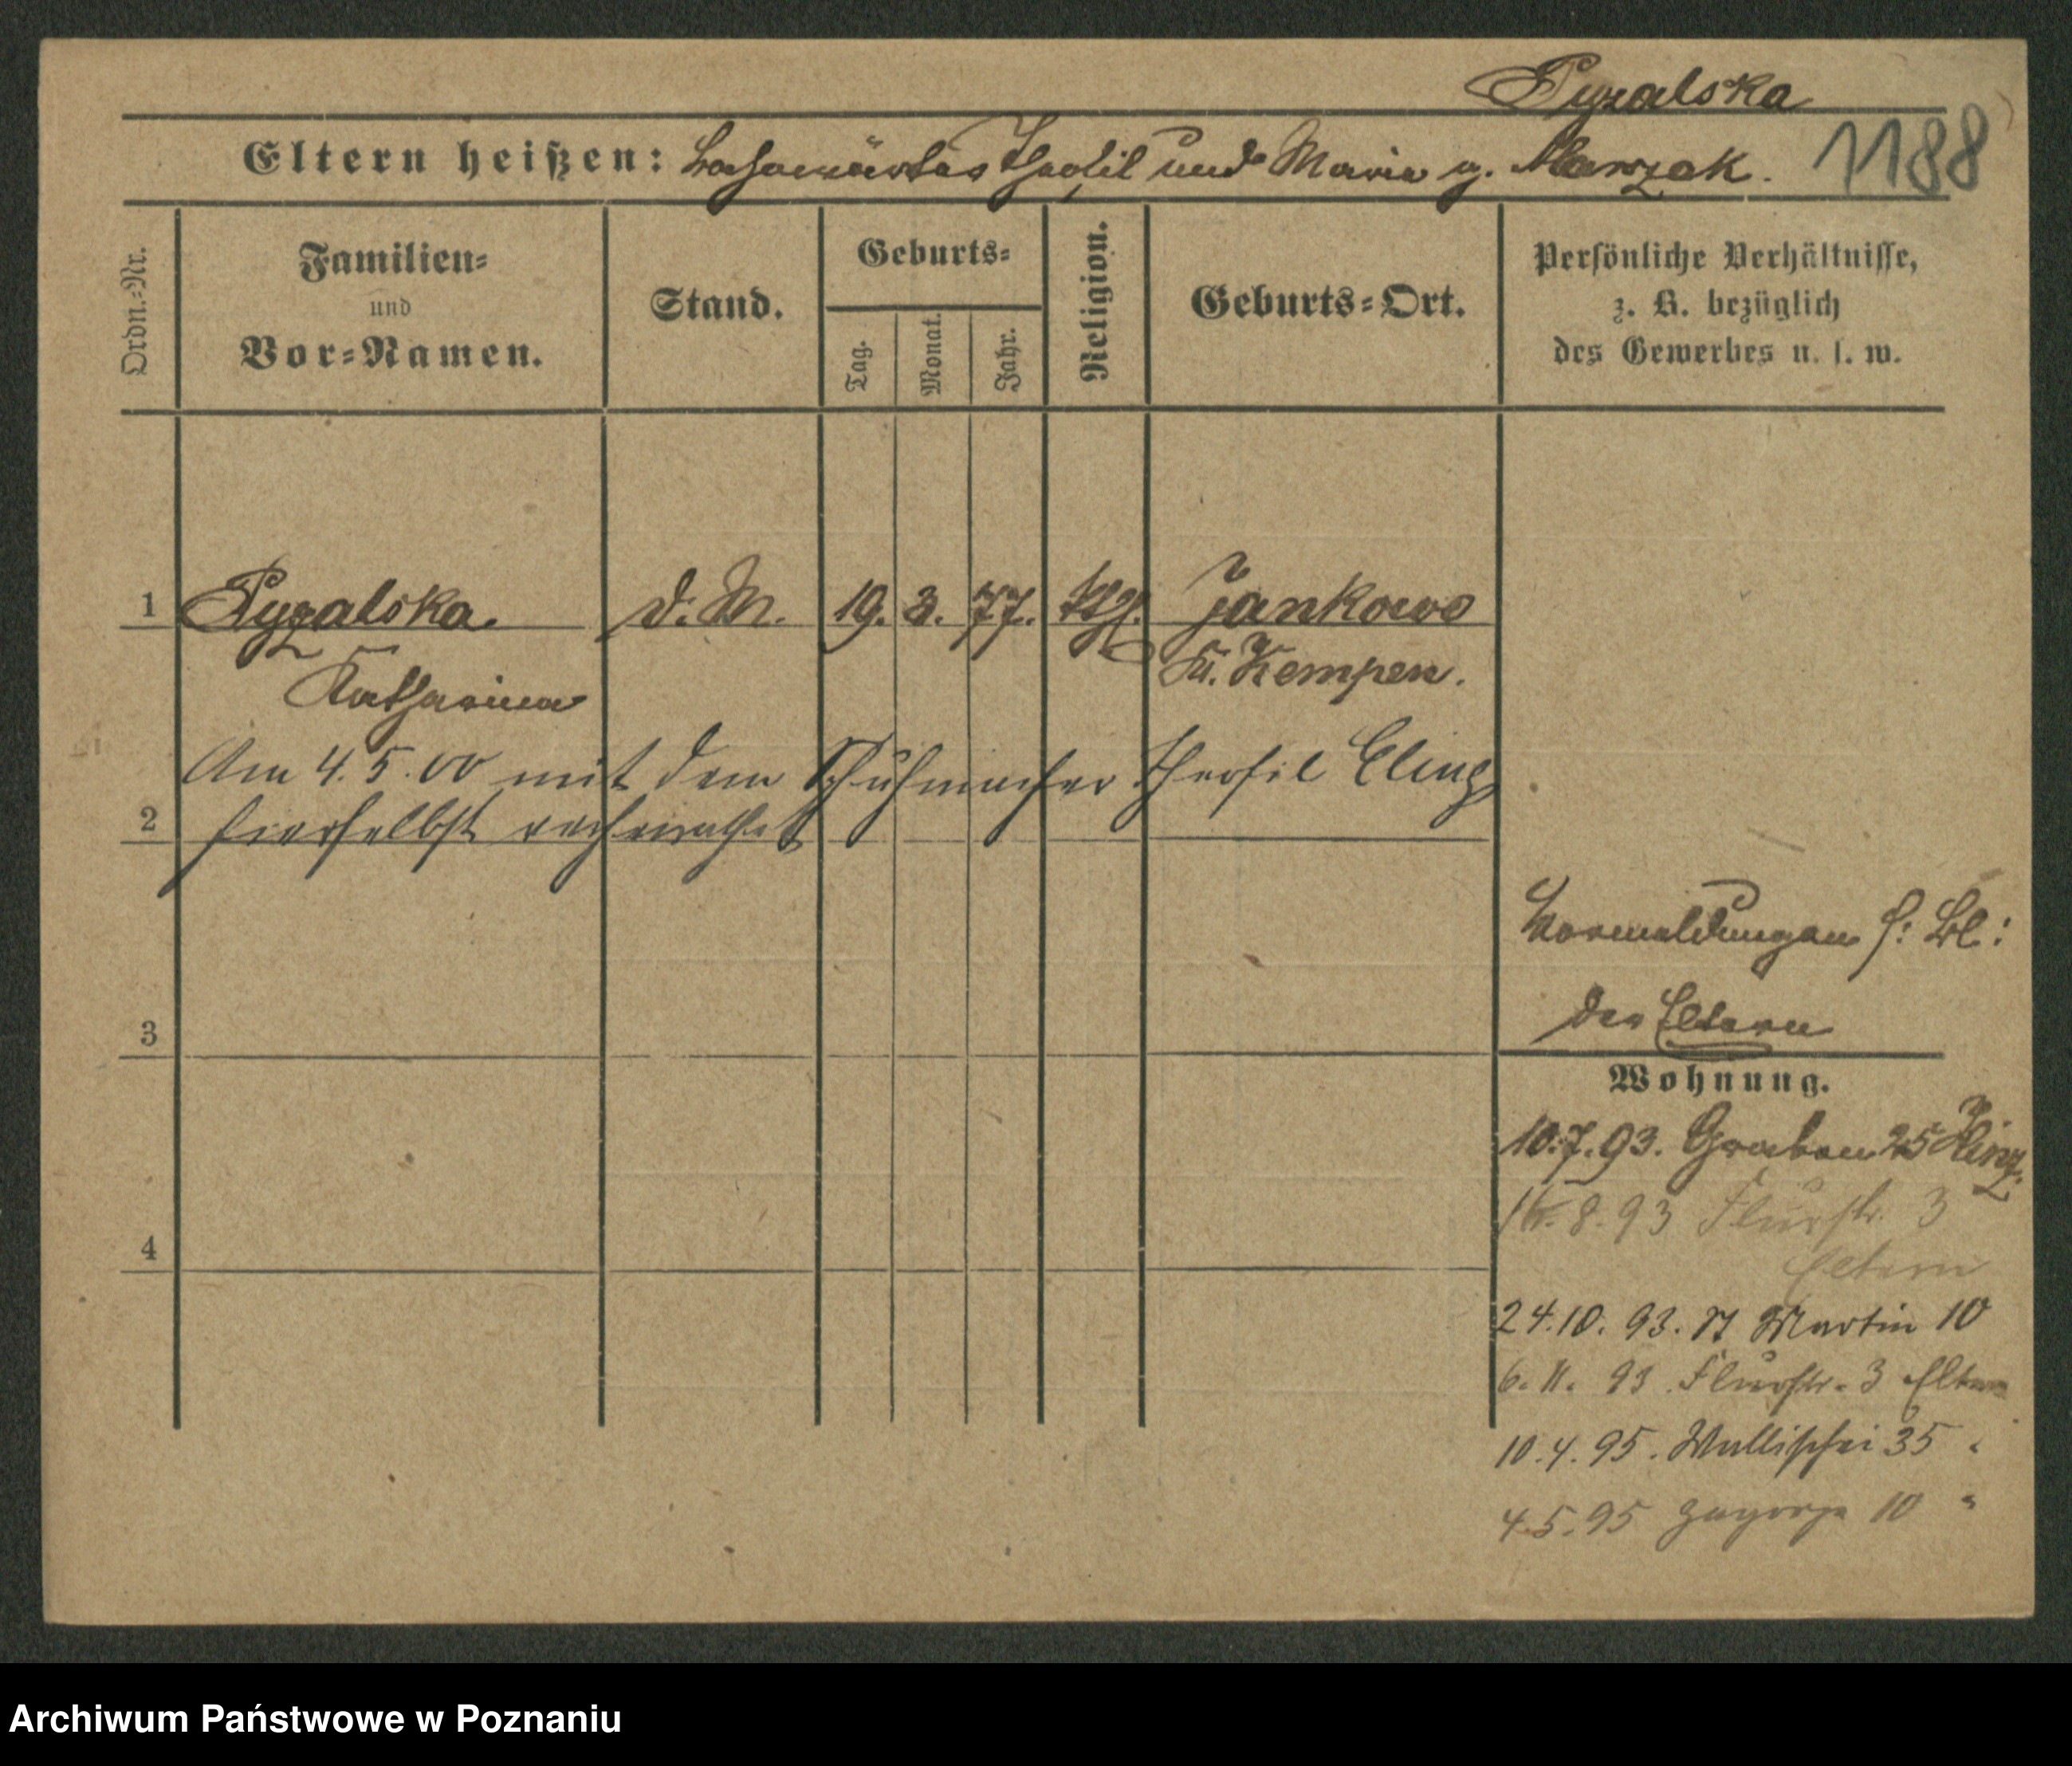 Pyzalska
Eltern heißen: Theofil und Maria g. Marszak.
1188
Ordn.-Nr.
Familien-
und
Vor-Namen.
Stand.
Geburts-
Tag.
Monat.
Jahr.
Religion.
Geburts-Ort.
Persönliche Verhältnisse,
z. B. bezüglich
des Gewerbes u. s. w.
1 Pyzalska. d. M. 19. 3. 77. kth. Jankowo
Katharina Kr. Kempen.
Am 4.5.00 mit dem Schuhmacher Theofil
2 hierselbst verheirathet
Vormeldungen s: Bl:
der Eltern
3
Wohnung.
10.7.93. Graben 25
8.93 Flurstr. 3
Eltern
4
24.10.93. St Martin 10
6.11.93. Flurstr. 3 Eltern
10.4.95. Wallischei 35 "
4.5.95 Zagorze 10 "
Archiwum Państwowe w Poznaniu